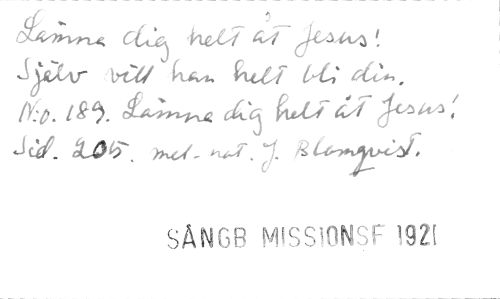 Lämna dig helt åt Jesus!
Själv vill han helt bli din.
N:o. 189. Lämna dig helt åt Jesus!
Sid. 205. mel. nat. J. Blomqvist.
SÅNGB MISSIONSF 1921